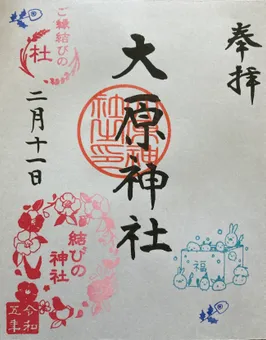 奉拝
大原神社
ご縁結びの
社
二月十一日
結びの
神社
福
令和
五年